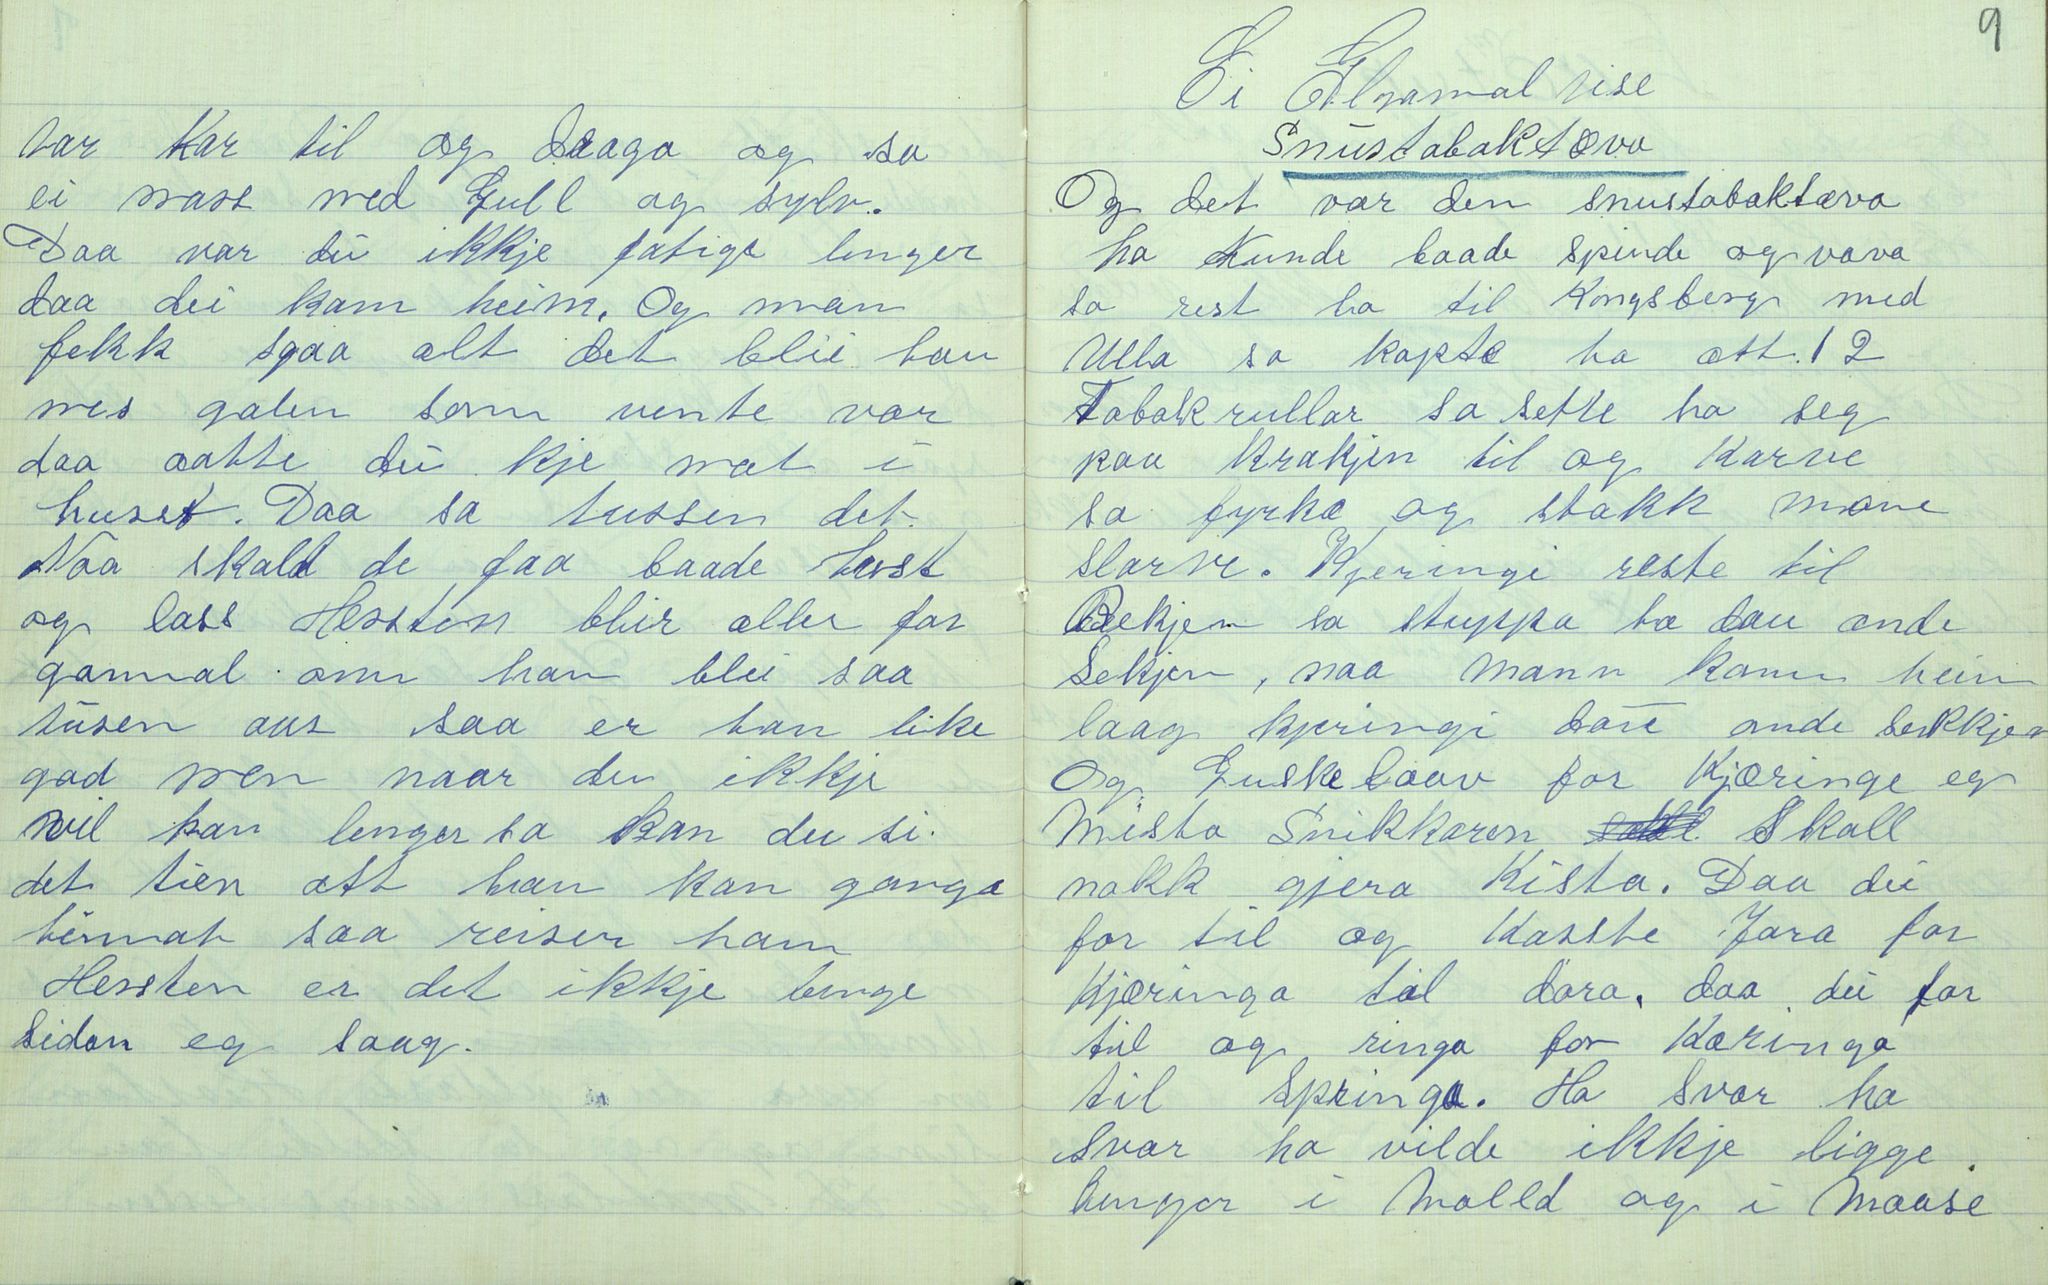 var kar til og draaga og so
ei mass med Gull og sylv.
Daa var dei ikkje fatige lenger
daa dei kom heim. Og man
fekk sjaa alt det blei han
mes galen som vente var
daa aatte dei kje mat i
huset. Daa sa tussen det.
Naa skald de faa baade hest
og lass Hessten blir aller for
gammal om han blei saa
tusen aar saa er han like
god men naar du ikkje
vil han lenger so kan du si
det tien att han kan ganga
heimat saa reiser han
Hessten er det ikkje lenge
sidan eg saag.
9
Ei Elgamal vise
Snustabaktæva
Og det var den snustabaktæva
ho kunde baade spinde og væva
so rest ho til Kongsberg med
Ulla so kopte ho att. 12
Tobakrullar so sette ho seg
paa krakjen til og karve
so fyrke og stakk mone
slarve. Kjeringi reste til
Bekjen so stuppa ho dau onde
Sekjen, naa mann kom heim
laag kjeringi dau onde sekkjen
Og Guskelaav for Kjæringe eg
Mista Snikkaren Skall
nokk gjera Kista. Daa dei
for til og Kasste Jora for
Kjæringa til dora. daa dei for
til og ringa for Kæringa
til springa. Ho svor ho
svor ho vilde ikkje ligge
lenger i Molld og i Maase